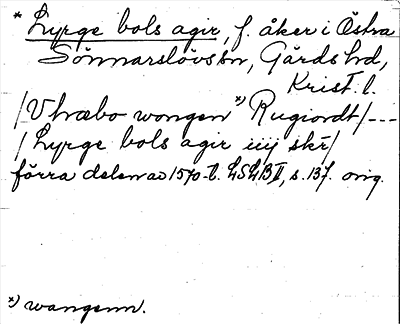 * Lyrge bols agir, f. åker i Östra
Sönnarslövs sn, Gärds hd,
Krist. l.
/Vhræbo wongen *) Rugiordt/---
/Lyrge bols agir iiij skr/
förra delen av 1570-t. LSLB II, s. 137. orig.
*) wangenn.